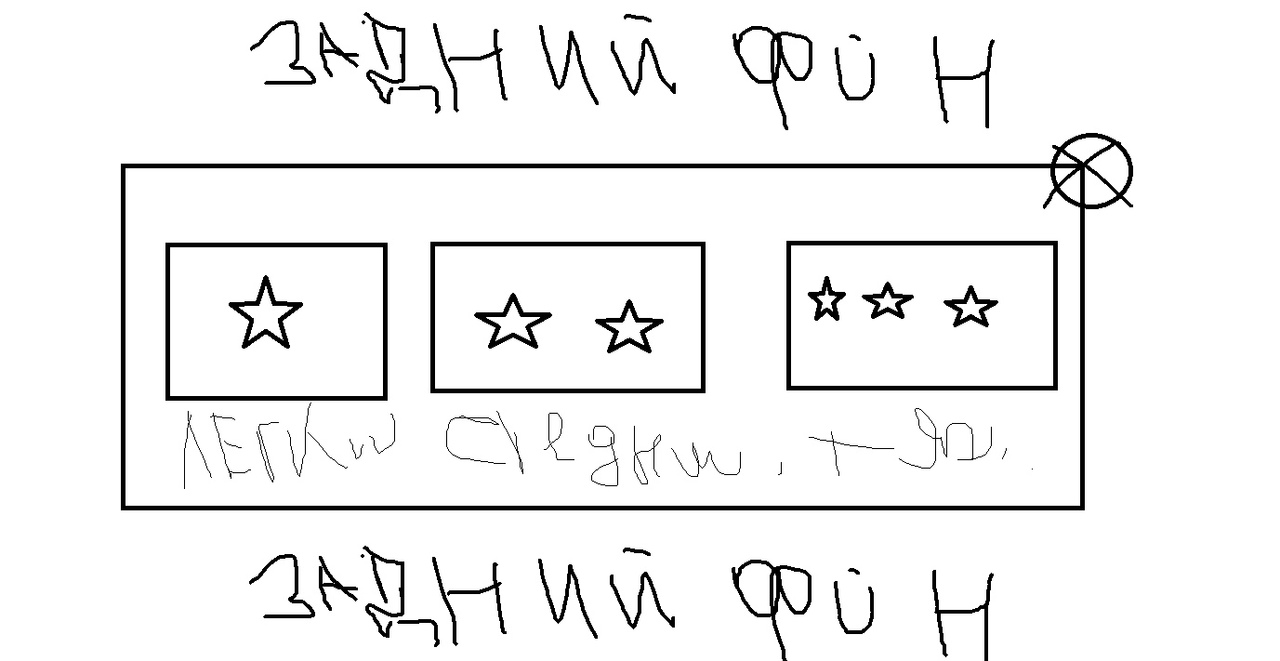 ЗАДНИЙ ФОН
ЛЕГКИЙ средний
ЗАДНИЙ ФОН